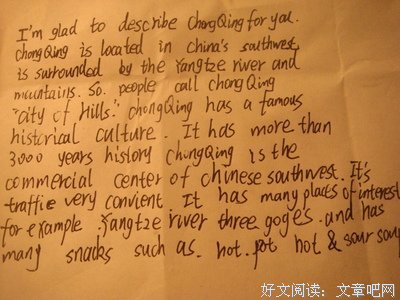 I'm glad to describe ChongQing for you.
ChongQing is located in China's southwest
is surrounded by the Yangtze river and
mountains. So. people call chongQing
"City of Hills." ChongQing has a famous
historical culture. It has more than
3000 years history ChongQing is the
commercial center of chinese southwest. It's
traffic very convient It has many places of interest
for example. Yangtze river three goges. and has
many snacks such as. hot. pot hot & sour soup
好文阅读：文章吧网